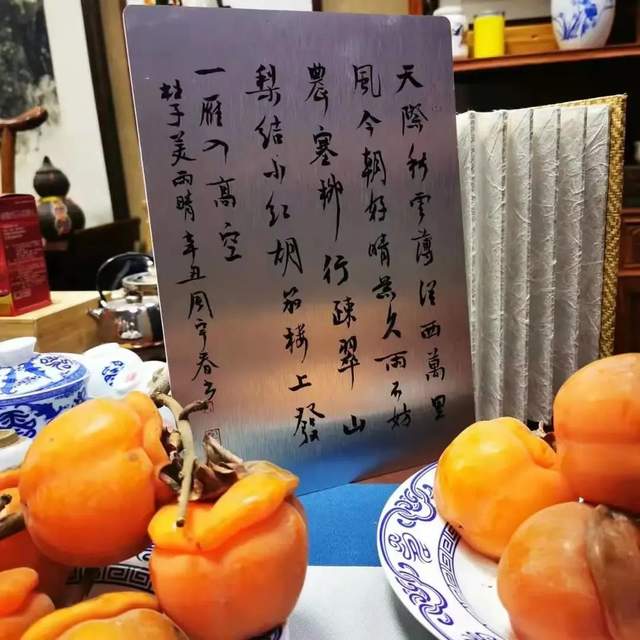 天際秋雲薄從西萬里
風今朝好晴景久雨不妨
農塞柳行疎翠山
梨結小紅胡笳樓上發
一雁入高空
杜子美雨晴辛丑周宇春书